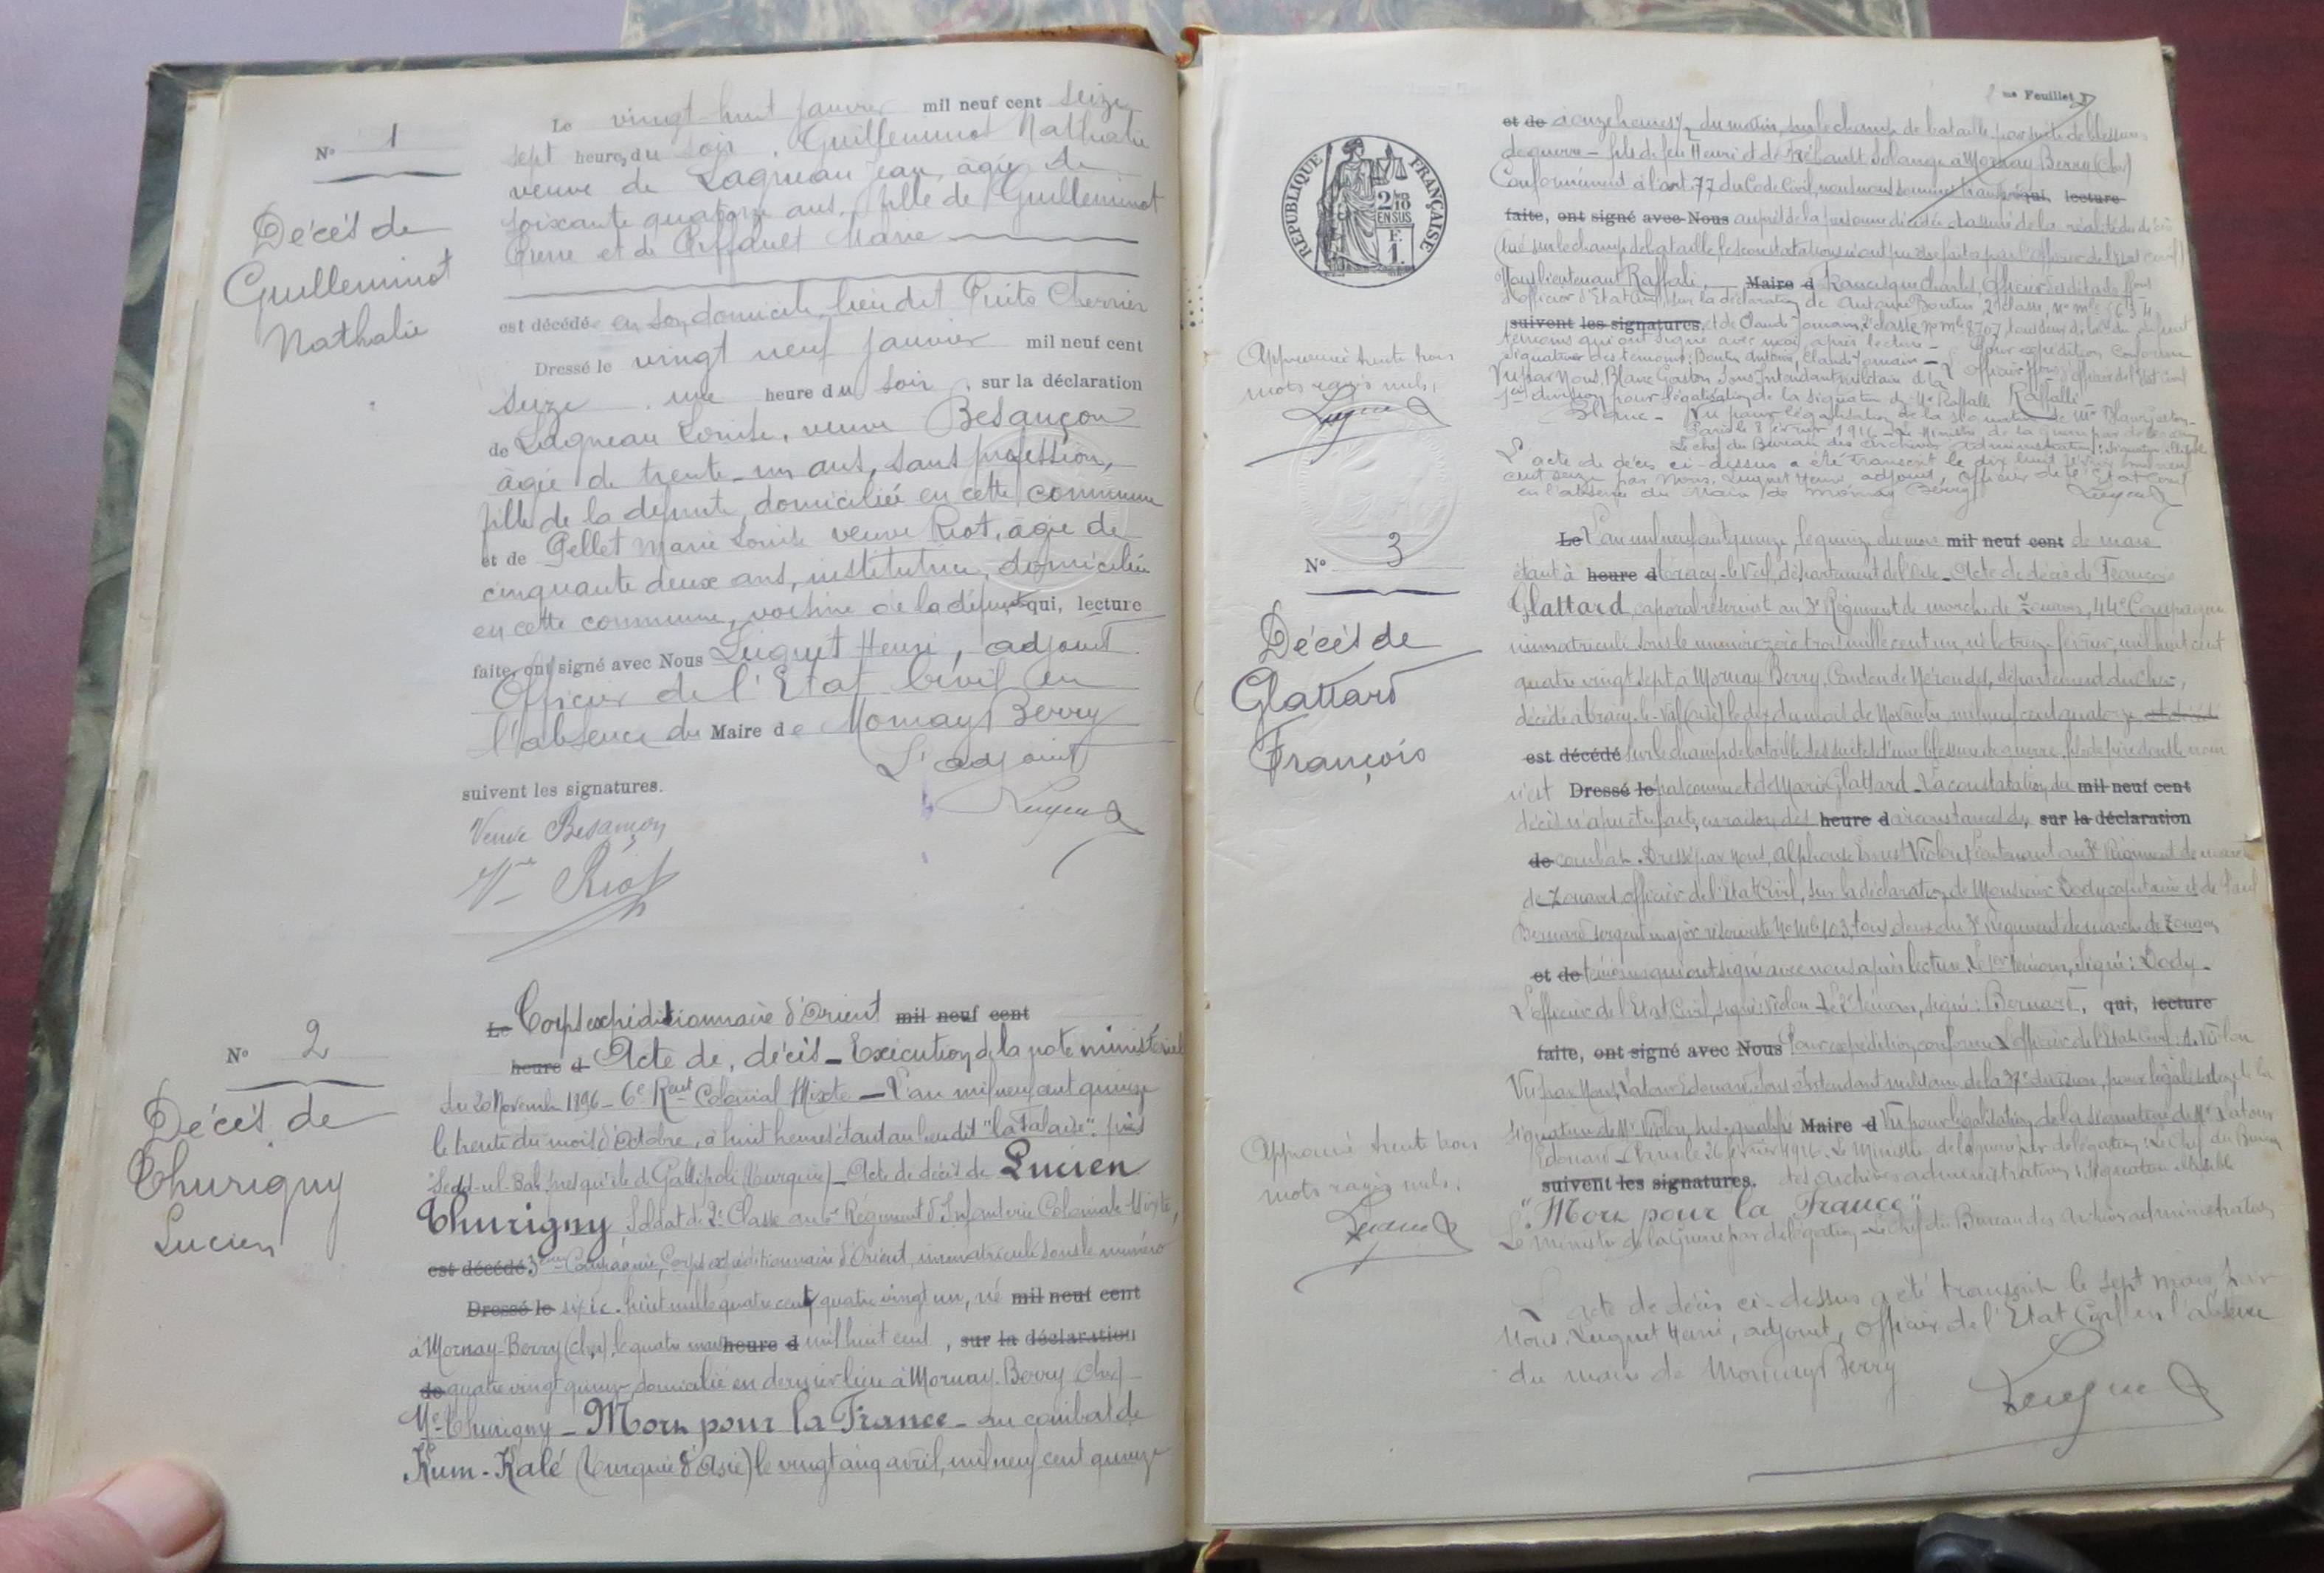 N° 1
Décès de
Guilleminot
Nathalie
Le vingt-huit janvier mil neuf cent seize
sept heure, du soir, Guilleminot Nathalie
veuve de Lagneau Jean, âgée de
soixante quatorze ans, fille de Guilleminot
Pierre et de Piffault Marie
est décédée en son domicile, lieu dit Puits Chevrier
Dressé le vingt neuf janvier mil neuf cent
seize, une heure du soir, sur la déclaration
de Lagneau Louise, veuve Besançon
âgée de trente-un ans, sans profession,
fille de la defunte, domiciliée en cette commune
et de Pellet Marie Louise veuve Riot, âgée de
cinquante deux ans, institutrice, domiciliée
en cette commune, voisine de la défunte qui, lecture
faite, ont signé avec Nous Luquet Henri, adjoint
Officier de l'Etat Civil en
l'absence du Maire de Mornay Berry
L'adjoint
suivent les signatures.
Luquet
Veuve Besançon
Vve Riot
N° 2
Décès de
Thurigny
Lucien
Le Corps expéditionnaire d'Orient mil neuf cent
heure d Acte de décès - Exécution de la note ministériel
du 20 Novembre 1896 - 6e Reg Colonial Mixte - L'an mil neuf cent quinze
le trente du mois d'Octobre, à huit heures étant au lieu dit "la Falaise" près
Sedd-ul-Bah, presqu'île de Gallipoli (Turquie) - Acte de décès de Lucien
Thurigny, Soldat de 2e Classe au 6e Régiment d'Infanterie Coloniale Mixte,
est décédé 3eme Compagnie, Corps expéditionnaire d'Orient, immatriculé sous le numéro
Dressé le six ic. huit mille quatre cent quatre vingt un, né mil neuf cent
à Mornay-Berry (Cher), le quatre mai heure d mil huit cent, sur la déclaration
de quatre vingt quinze, domicilié en dernier lieu à Mornay-Berry (Cher) -
Thurigny - Mort pour la France - au combat de
Kum-Kalé (Turquie d'Asie) le vingt cinq avril, mil neuf cent quinze
me Feuillet
et de onze heures du matin, sur le champ de bataille par suite de blessures
de guerre - fils de feu Henri et de Solange à Mornay-Berry (Cher)
Conformément à l'art. 77 du Code Civil, nous nous sommes transporté qui, lecture
faite, ont signé avec Nous auprès de la personne décédée et assuré de la réalité du décès
(Tué sur le champ de bataille, les constatations n'ont pu être faites par l'officier de l'Etat Civil)
Nous lieutenant Raffalli, Maire d Francisque Charles, Officier
d'Officier d'Etat Civil, sur la déclaration de Antoine Boutin 2e classe, n° mle 5634
suivent les signatures. et de Claude Jamain, 2e classe n° mle 8707, tous deux
témoins qui ont signé avec moi après lecture - Pour expédition conforme
Signatures des témoins: Boutin Antoine, Claude Jamain - L'officier de l'Etat Civil
Vu par Nous, Blanc Gaston Sous Intendant militaire de la Raffalli
division, pour légalisation de la signature de Mr Raffalli
Blanc - Vu pour légalisation de la signature de Mr Blanc Gaston
Paris le 8 février 1916 - Le Ministre de la guerre par délégation
Le chef du Bureau des Archives Administratives: signature illisible
L'acte de décès ci-dessus a été transcrit le dix huit février mil neuf
cent seize par Nous, Luquet Henri adjoint, Officier de l'Etat Civil
en l'absence du Maire de Mornay Berry
Luquet
Approuvé trente trois
mots rayés nuls,
Luquet
REPUBLIQUE FRANÇAISE
2/10
EN SUS
F.
1.
N° 3
Décès de
Glattard
François
Le L'an mil neuf cent quinze, le quinze du mois mil neuf cent de mars
étant à heure d Tracy-le-Val, département de l'Oise - Acte de décès de François
Glattard, caporal réserviste au 3e Régiment de marche de Zouaves, 44e Compagnie
immatriculé sous le numéro zéro trois mille cent un, né le treize février, mil huit cent
quatre vingt sept à Mornay-Berry, Canton de Nérondes, département du Cher,
décédé à Tracy-le-Val (Oise) le dix du mois de Novembre, mil neuf cent quatorze
est décédé sur le champ de bataille des suites d'une blessure de guerre, fils de père dont le nom
n'est Dressé le pas connu et de Marie Glattard - La constatation du mil neuf cent
décès n'a pu être faite, en raison des heure d circonstances du sur la déclaration
de combat. Dressé par nous, Alphonse Ernest Violon, lieutenant au 3e Régiment de marche
de Zouaves, officier de l'Etat Civil, sur la déclaration de Monsieur Dody capitaine et de Paul
Bernard sergent major réserviste N° Mle 103, tous deux du 3e Régiment de marche de Zouaves
et de témoins qui ont signé avec nous après lecture. Le 1er témoin, signé: Dody.
L'officier de l'Etat Civil, signé: Violon - Le 2e témoin, signé: Bernard, qui, lecture
faite, ont signé avec Nous Pour expédition conforme L'officier de l'Etat Civil A. Violon
Vu par Nous, Latour Edouard, Sous Intendant militaire de la 37e division, pour légalisation de la
signature de Mr Violon, sus-qualifié Maire d Vu pour légalisation de la signature de Mr Latour
Edouard - Paris le 26 février 1916. Le Ministre de la guerre par délégation: Le Chef du Bureau
suivent les signatures. des Archives administratives, Signature illisible
"Mort pour la France"
Le Ministre de la Guerre par délégation - Le Chef du Bureau des Archives administratives
L'acte de décès ci-dessus a été transcrit le sept mars, par
Nous, Luquet Henri, adjoint, Officier de l'Etat Civil en l'absence
du maire de Mornay Berry
Luquet
Approuvé trente trois
mots rayés nuls.
Luquet